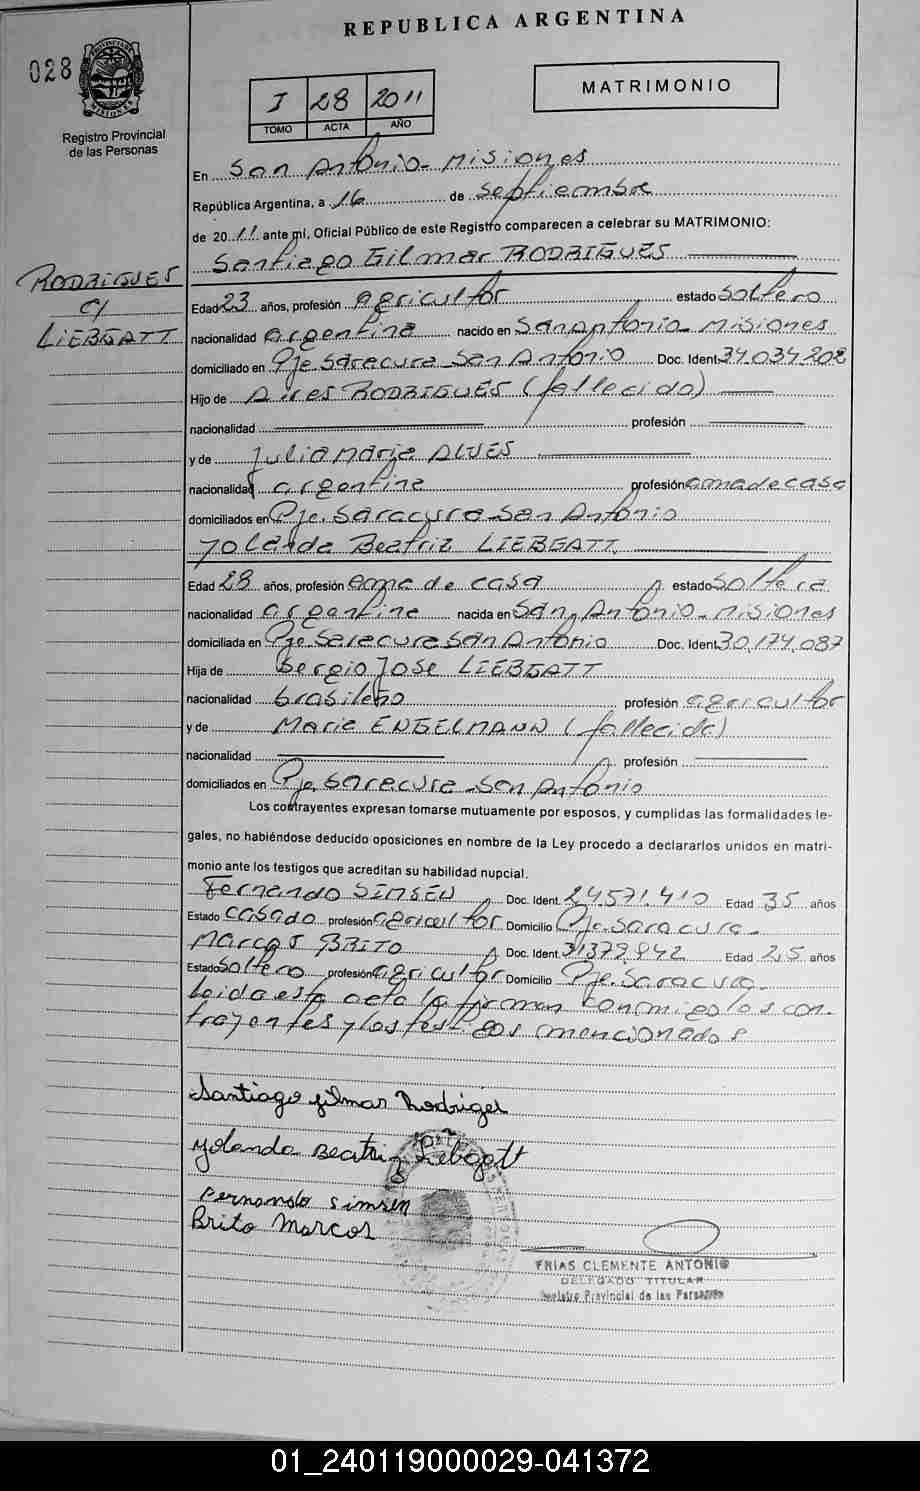 REPUBLICA ARGENTINA
028
PROVINCIA DE MISIONES
Registro Provincial
de las Personas
I 28 2011
TOMO ACTA AÑO
MATRIMONIO
En San Antonio - Misiones
República Argentina, a 16 de Septiembre
de 2011 ante mí, Oficial Público de este Registro comparecen a celebrar su MATRIMONIO:
Santiago Gilmar RODRIGUES
RODRIGUES
c/
LIEBGATT
Edad 23 años, profesión agricultor estado soltero
nacionalidad argentina nacido en San Antonio - Misiones
domiciliado en Pje Saracura San Antonio Doc. Ident. 34.034.208
Hijo de Aires RODRIGUES (fallecido)
nacionalidad profesión
y de Julia Maria ALVES
nacionalidad argentina profesión ama de casa
domiciliados en Pje. Saracura - San Antonio
Yolanda Beatriz LIEBGATT
Edad 28 años, profesión ama de casa estado soltera
nacionalidad argentina nacida en San Antonio - Misiones
domiciliada en Pje Saracura San Antonio Doc. Ident. 30.174.087
Hija de Sergio Jose LIEBGATT
nacionalidad brasileño profesión agricultor
y de Maria ENGELMANN (fallecida)
nacionalidad profesión
domiciliados en Pje. Saracura - San Antonio
Los contrayentes expresan tomarse mutuamente por esposos, y cumplidas las formalidades le-
gales, no habiéndose deducido oposiciones en nombre de la Ley procedo a declararlos unidos en matri-
monio ante los testigos que acreditan su habilidad nupcial.
Fernando SIMSEN Doc. Ident. 24.571.410 Edad 35 años
Estado casado profesión agricultor Domicilio Pje. Saracura -
Marcos BRITO Doc. Ident. 31379.942 Edad 25 años
Estado soltero profesión agricultor Domicilio Pje. Saracura -
Leida esta acta la firman conmigo los con-
trayentes y los testigos mencionados
Santiago gilmar Rodriges
Yolanda Beatriz Liebgott
Fernando Simsen
Brito Marcos
FRIAS CLEMENTE ANTONIO
DELEGADO TITULAR
Registro Provincial de las Personas
01_240119000029-041372